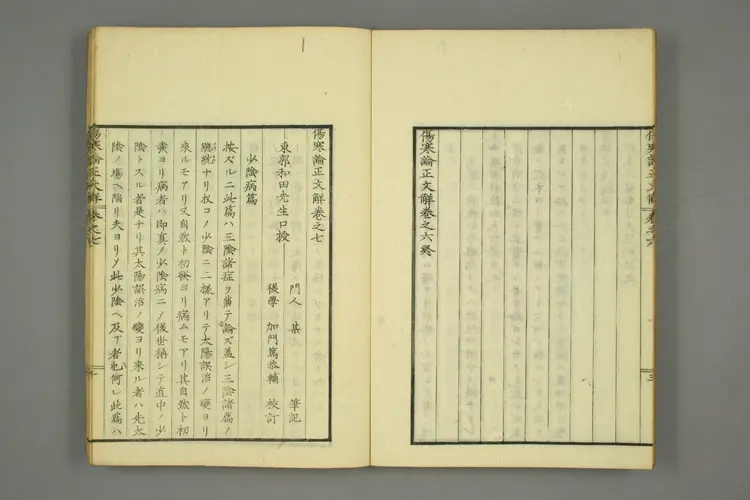 傷寒論正文解卷之六
傷寒論正文解卷之六終
傷寒論正文解卷之七
東郭和田先生口授
門人 某 筆記
後學 加門篤恭輔 校訂
少陰病篇
按ズルニ此篇ハ三陰諸症ヲ兼テ論ズ蓋シ三陰諸篇ノ
樂統ナリ扨コノ少陰ニ二樣アリテ太陽誤治ノ變ヨリ
來ルモアリ又自然ト初發ヨリ病ムモアリ其自然ト初
發ヨリ病者ハ即真ノ少陰病ニノ後世稱シテ直中ノ少
陰トスル者是ナリ其太陽誤治ノ變ヨリ來ル者ハ先太
陰ノ場ヘ陷リ夫ヨリメ此少陰ヘ及ブ者也何レ此篇ハ
傷寒論正文解 卷之七